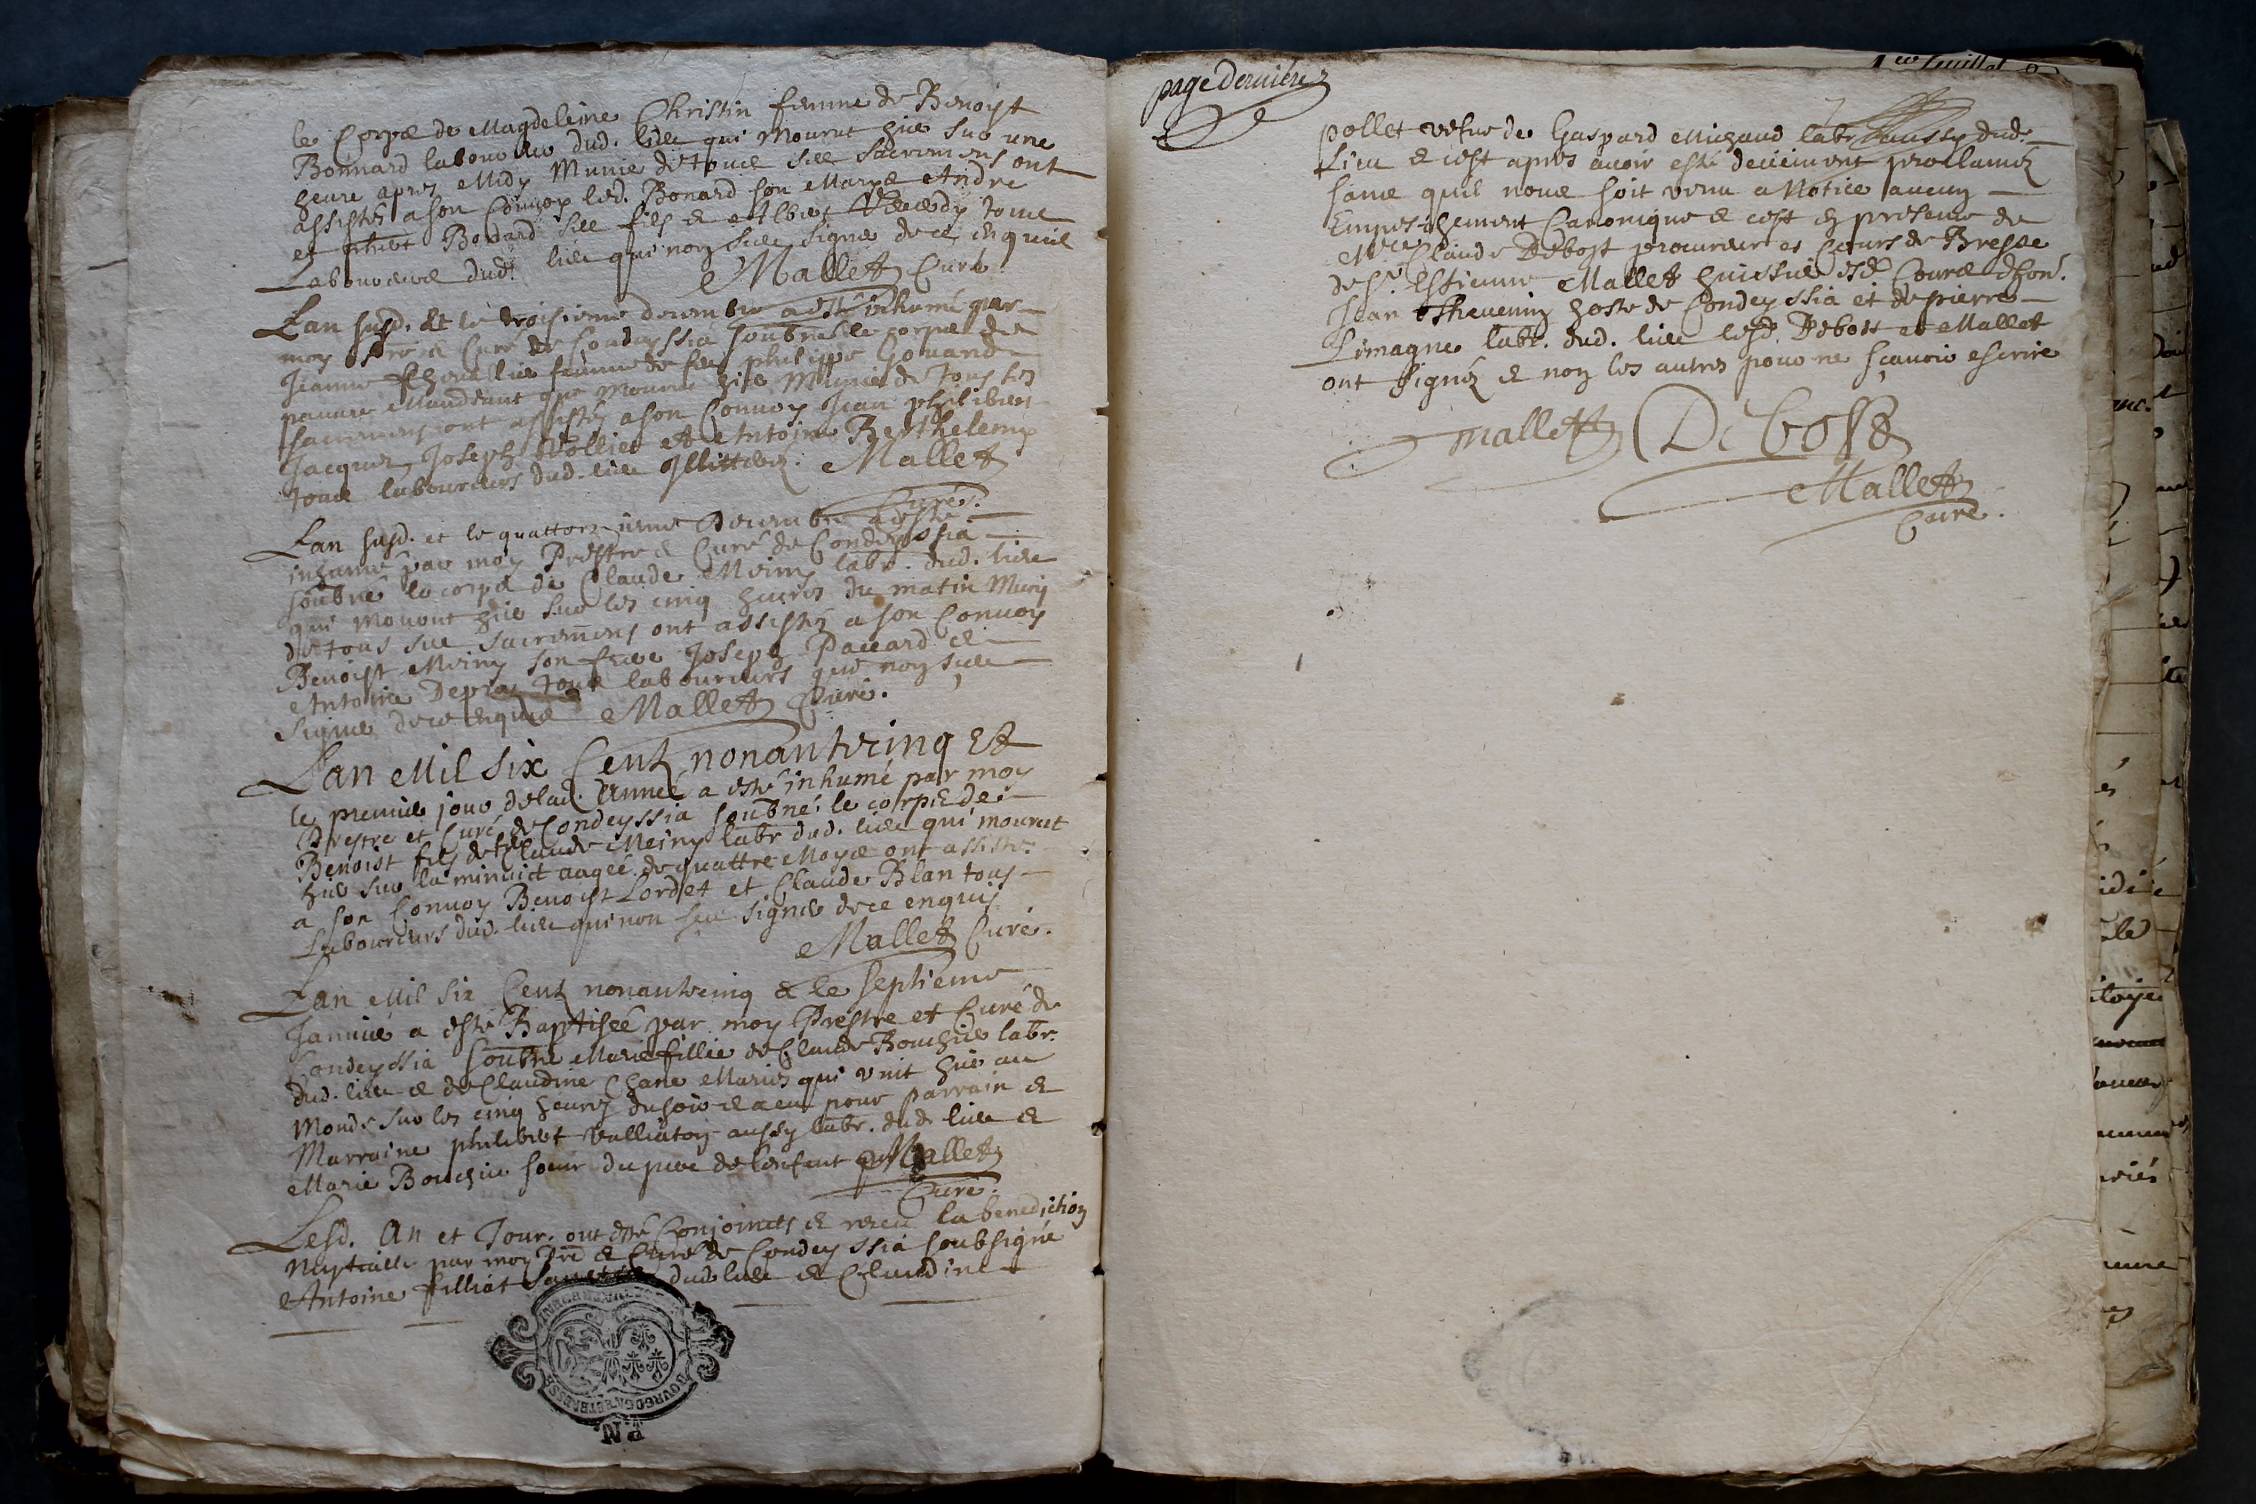 le Corps de Magdeleine Christin femme de Benoist
Bonnard laboureur dud. lieu qui Mourut hier sur une
heure apres Midy Munie de tous ses sacremens ont
assisté a son Convoy led. Bonard son Mary André
et Bonard ses fils & tous
Laboureurs dud. lieu qui non sceu signer de ce enquis
Mallet Curé
Lan susd. Et le troisieme decembre a esté inhumé par
moy Curé de Condeyssia soubné le corps de
Jeanne femme de feu philippe Gouand
pauvre Mandiant que Mourut hier Munie de tous les
sacremens ont assisté a son Convoy Jean philibert
Jacquet, Joseph et Antoine Berthelemy
tous laboureurs dud. lieu Illitteréz. Mallet
Curé.
Lan susd. et le quattorzieme Decembre a esté
inhumé par moy Prestre & Curé de Condeyssia
soubné le corps de Claude Meiny labr. dud. lieu
qui Mourut hier sur les cinq heures du matin Muny
de tous ses sacremens ont assisté a son Convoy
Benoist Meiny son frere Joseph Pauard &
Antoine Depra, tous laboureurs qui non sceu
signer de ce enquis Mallet Curé.
Lan Mil six Centz nonantecinq Et
le premier jour de lad. Année a esté inhumé par moy
Prestre et Curé de Condeyssia soubné le corps de
Benoist fils de Claude Meiny labr dud. lieu qui mourut
hier sur la minuict aagée de quattre Moys ont assisté
a son Convoy Benoist Lordet et Claude Blan tous
Laboureurs dud. lieu qui non sceu signer de ce enquis
Mallet Curé.
Lan Mil six Centz nonantecinq & le septieme
Janvier a esté Baptisée par moy Prestre et Curé de
Condeyssia soubné Marie fillie de Claude Bouchier labr.
dud. lieu & de Claudine Chane Mariez qui vnit hier au
Monde sur les cinq heures du soir & a eu pour parrain &
Marraine philibert Valliaton aussy labr. dud. lieu &
Marie Bouchier soeur du pere de lenfant Mallet
Curé.
Lesd. An et Jour, ont esté Conjoincts & receu la benediction
Nuptialle par moy Pre & Curé de Condeyssia soubsigné
Antoine filliat dud. lieu & Claudine
BOURGOGNE ET BRESSE
P.N.
page derniére
pollet vefue de Gaspard Michaud labr aussy dud.
Lieu & cest apres auoir esté deüement proclaméz
sans quil nous soit venu a Notice aucun
Empeschement Canonique & cest en presence de
Mre Claude Debost procureur es Cours de Bresse
de Sr. Estienne Mallet huissier esd. Cours dhon.
Jean Theuenin hoste de Condeyssia et de pierre
Limagne labr. dud. lieu lesd. Debost et Mallet
ont signéz & non les autres pour ne sçauoir escrire
Mallet Debost
Mallet
Curé.